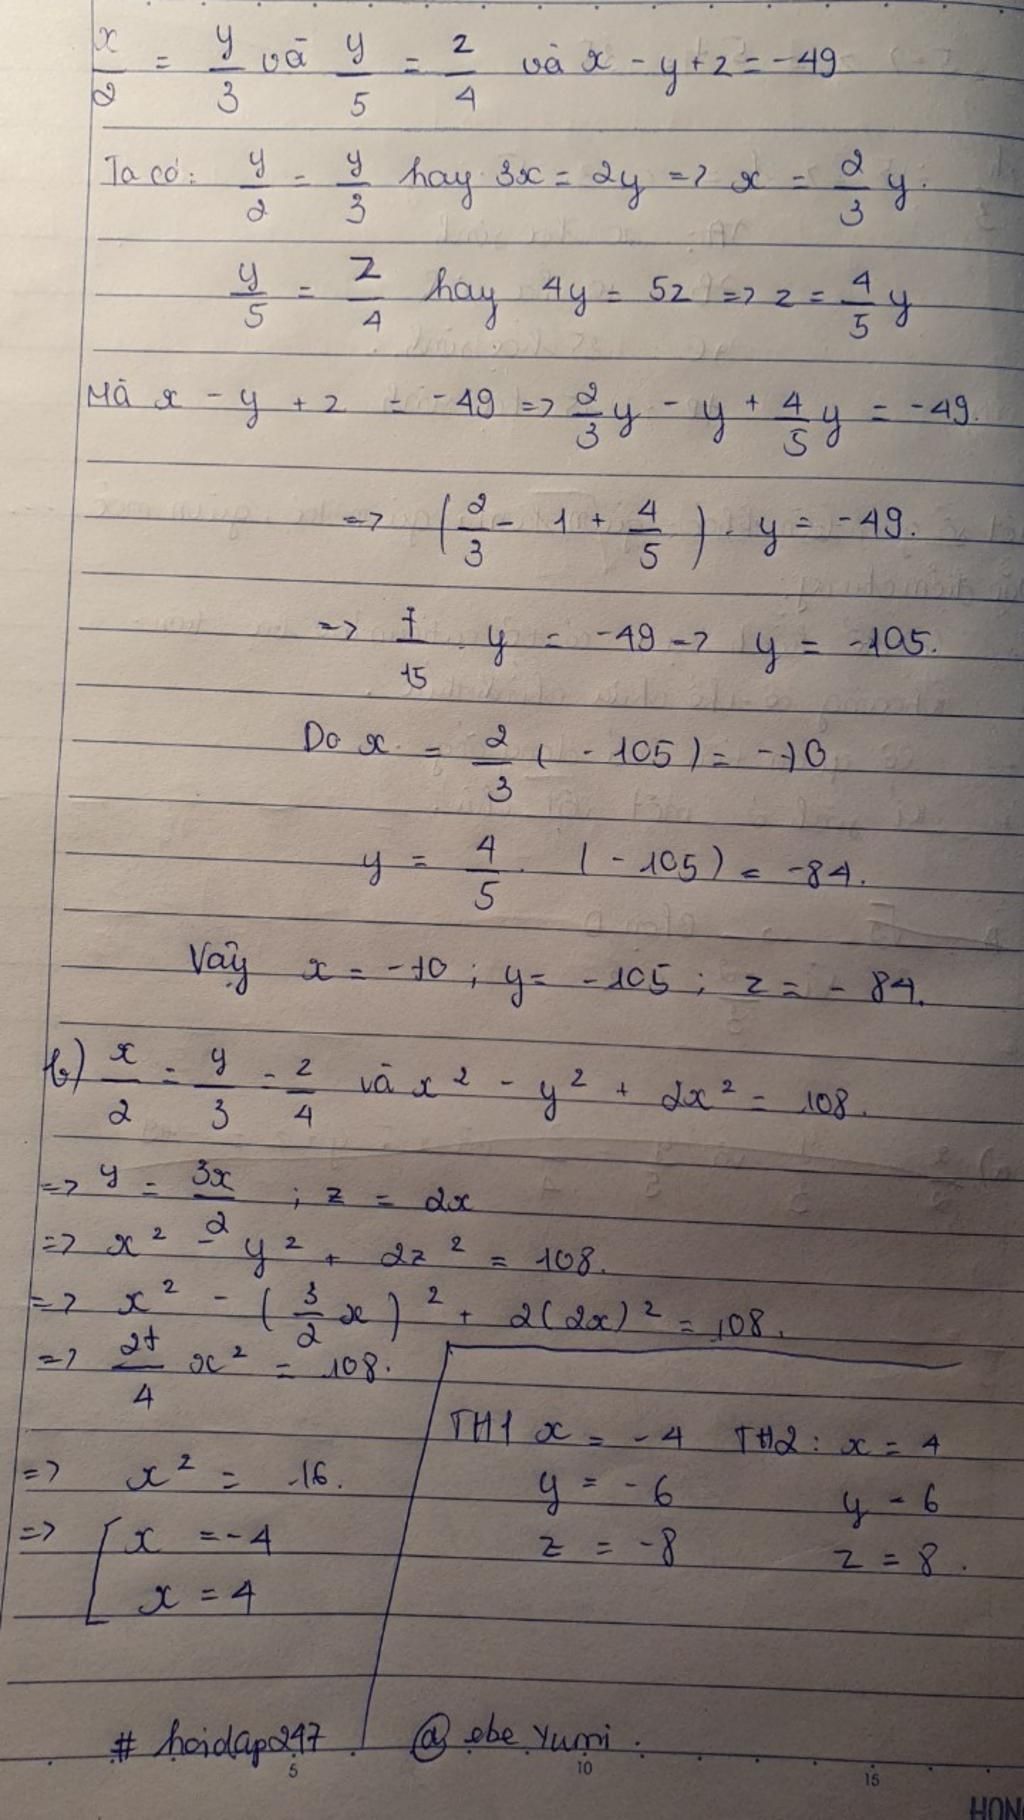 x/2 = y/3 và y/5 = z/4 và x - y + z = -49
Ta có: y/2 = y/3 hay 3x = 2y => x = 2/3 y.
y/5 = z/4 hay 4y = 5z => z = 4/5 y
Mà x - y + z = -49 => 2/3 y - y + 4/5 y = -49.
=> (2/3 - 1 + 4/5) . y = -49.
=> 7/15 . y = -49 => y = -105.
Do x = 2/3 (-105) = -70
y = 4/5 . (-105) = -84.
Vậy x = -70 ; y = -105 ; z = -84.
b) x/2 = y/3 = z/4 và x² - y² + 2x² = 108.
=> y = 3x/2 ; z = 2x
=> x² - y² + 2z² = 108.
=> x² - (3/2 x)² + 2(2x)² = 108.
=> 27/4 x² = 108.
=> x² = 16.
=> [ x = -4
x = 4
TH1 x = -4 TH2: x = 4
y = -6 y = 6
z = -8 z = 8.
# hoidap247 @ebe Yumi.
5 10 15